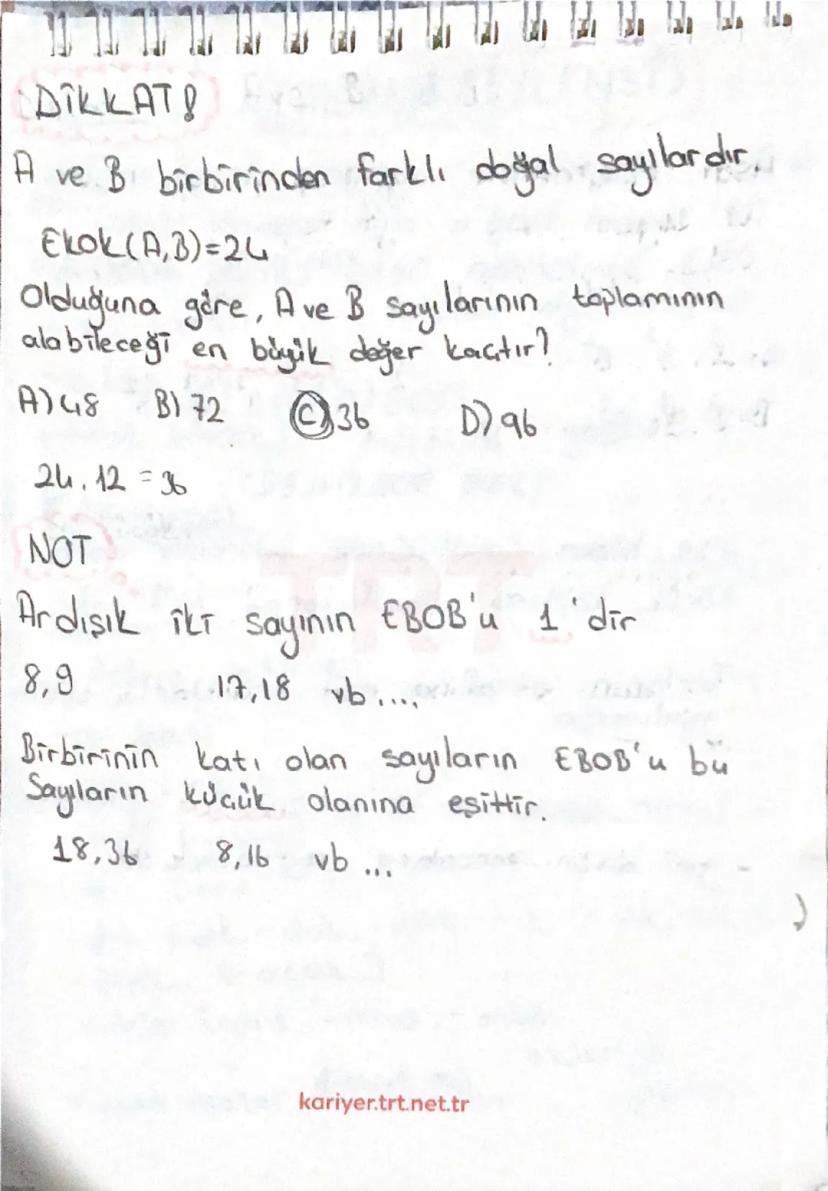 DİKKAT!
A ve B birbirinden farklı doğal sayılardır.
Ekok(A,B)=24
Olduğuna göre, A ve B sayılarının toplamının
alabileceği en büyük değer kaçtır?
A) 48 B) 72 C) 36 D) 96
24.12 = 36
NOT
Ardışık iki sayının EBOB'u 1'dir
8,9 17,18 vb....
Birbirinin katı olan sayıların EBOB'u bu
Sayıların küçük olanına eşittir.
18,36 8,16 vb...
TRT
kariyer.trt.net.tr